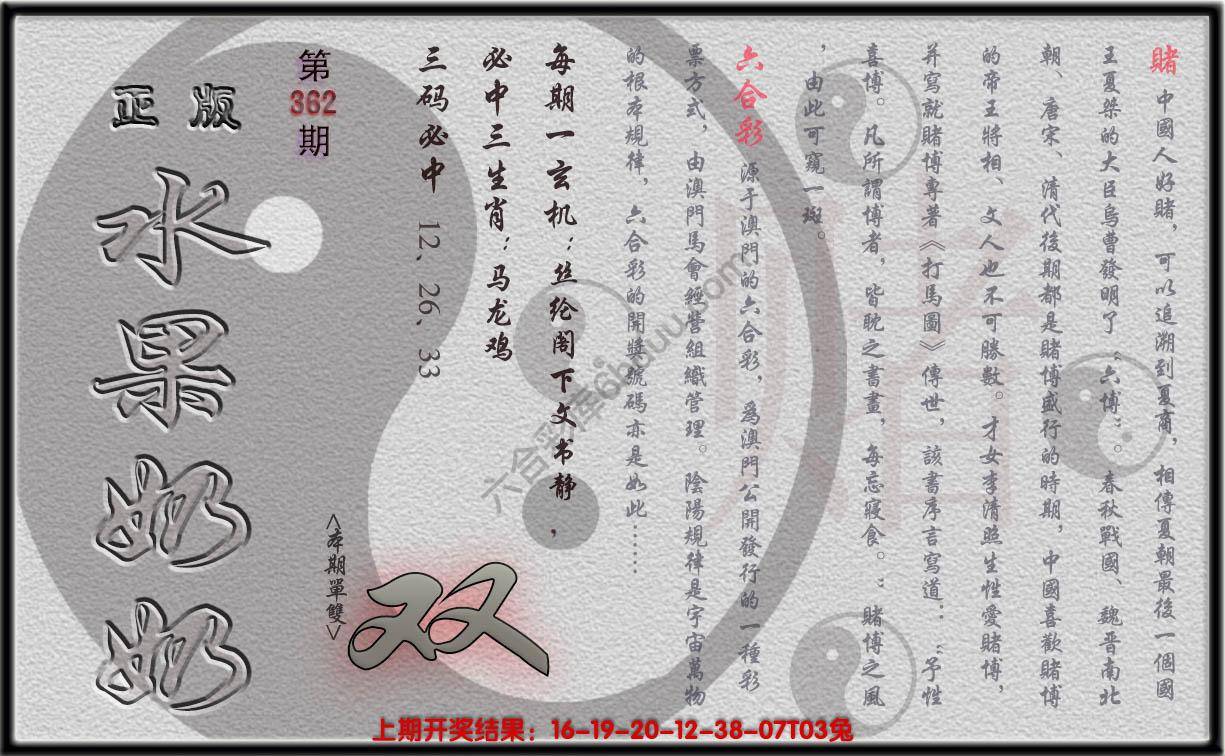 賭 中國人好賭，可以追溯到夏商，相傳夏朝最後一個國
王夏桀的大臣烏曹發明了“六博”。春秋戰國、魏晋南北
朝、唐宋、清代後期都是賭博盛行的時期，中國喜歡賭博
的帝王將相、文人也不可勝數。才女李清照生性愛賭博，
并寫就賭博專著《打馬圖》傳世，該書序言寫道：“予性
喜博。凡所謂博者，皆耽之書畫，每忘寢食。”賭博之風
，由此可窺一斑。
六合彩 源于澳門的六合彩，爲澳門公開發行的一種彩
票方式，由澳門馬會經營組織管理。陰陽規律是宇宙萬物
的根本規律，六合彩的開獎號碼亦是如此……
每期一玄机：丝纶阁下文书静，
必中三生肖：马龙鸡
三码必中 12、26、33
第
362
期
<本期單雙>
双
正版
水果奶奶
賭
六合彩库6huuu.com
上期开奖结果：16-19-20-12-38-07T03兔